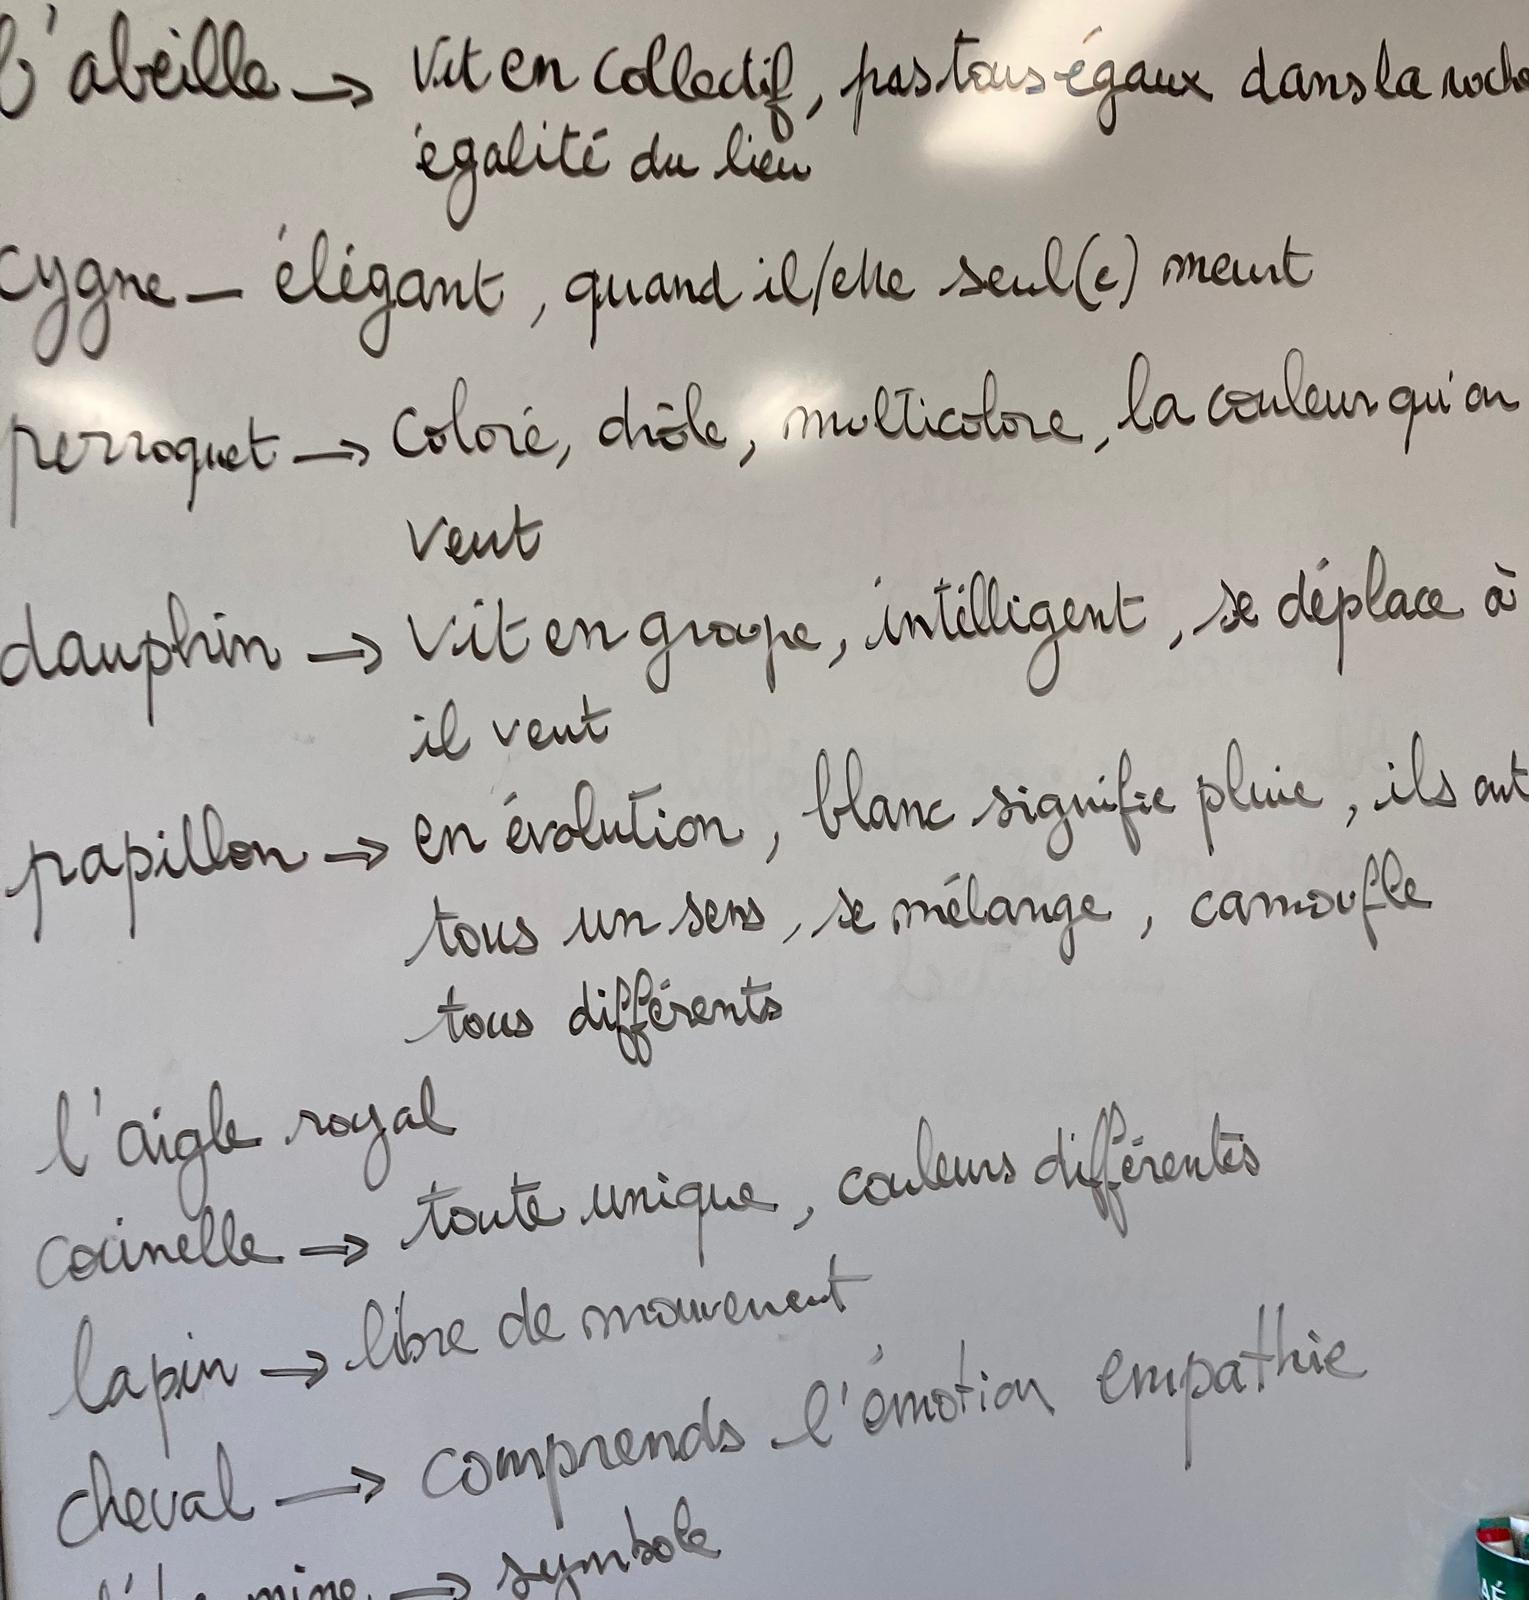 l'abeille → vit en collectif, pas tous égaux dans la roche
égalité du lieu
cygne — élégant, quand il/elle seul(e) meurt
perroquet → coloré, drôle, multicolore, la couleur qu'on
veut
dauphin → vit en groupe, intelligent, se déplace à
il veut
papillon → en évolution, blanc signifie pluie, ils ont
tous un sens, se mélange, camoufle
tous différents
l'aigle royal
cocinelle → toute unique, couleurs différentes
lapin → libre de mouvement
cheval → comprends l'émotion empathie
→ symbole